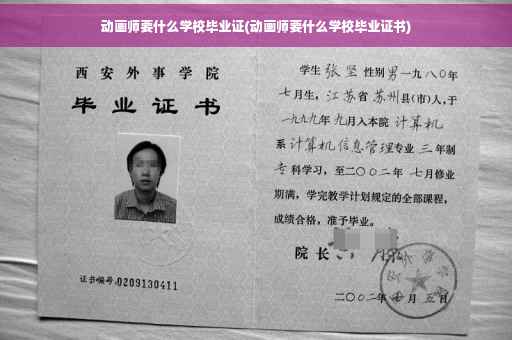 动画师要什么学校毕业证(动画师要什么学校毕业证书)
西安外事学院
毕业证书
证书编号:0209130411
学生 张坚 性别男一九八〇年
七月生，江苏省 苏州县(市)人，于
一九九九年 九月入本院 计算机
系 计算机信息管理专业 三 年制
专科学习，至二〇〇二年 七月修业
期满，学完教学计划规定的全部课程，
成绩合格，准予毕业。
院长
二〇〇二年 七 月 五 日